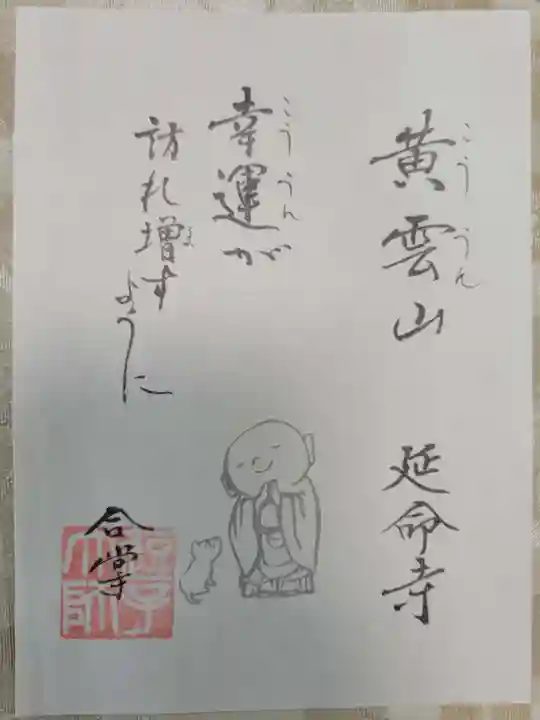 黄雲山 延命寺
こううん
幸運が
こううん
訪れ増す
ま
ように
合掌
大師